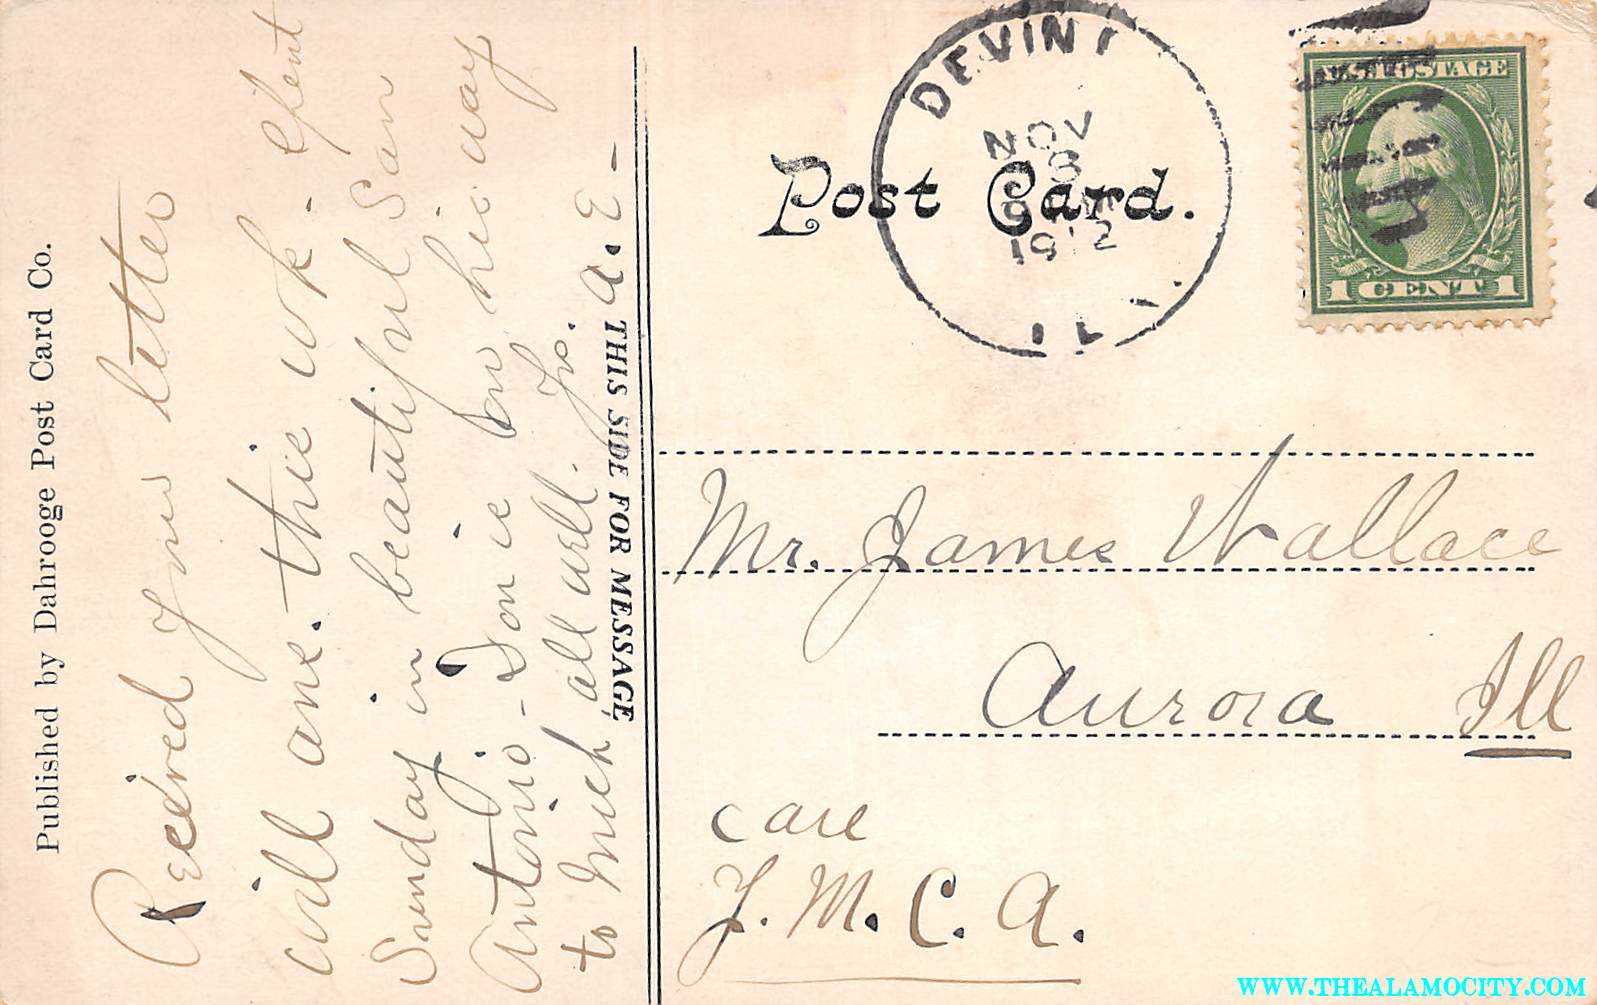 Published by Dahrooge Post Card Co.
Received your letter
will ans. this wk - Spent
Sunday in beautiful San
Antonio - Don is on his way
to Mich all well.
A. E -
THIS SIDE FOR MESSAGE
Post Card.
DEVIN
NOV
8
1912
U.S. POSTAGE
1 CENT 1
Mr. James Wallace
Aurora Ill
care
Y. M. C. A.
WWW.THEALAMOCITY.COM